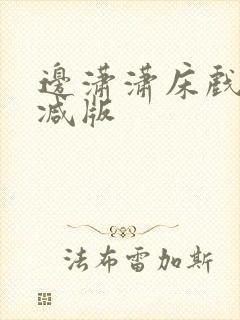 邊潇潇床戲
減版
法布雷加斯